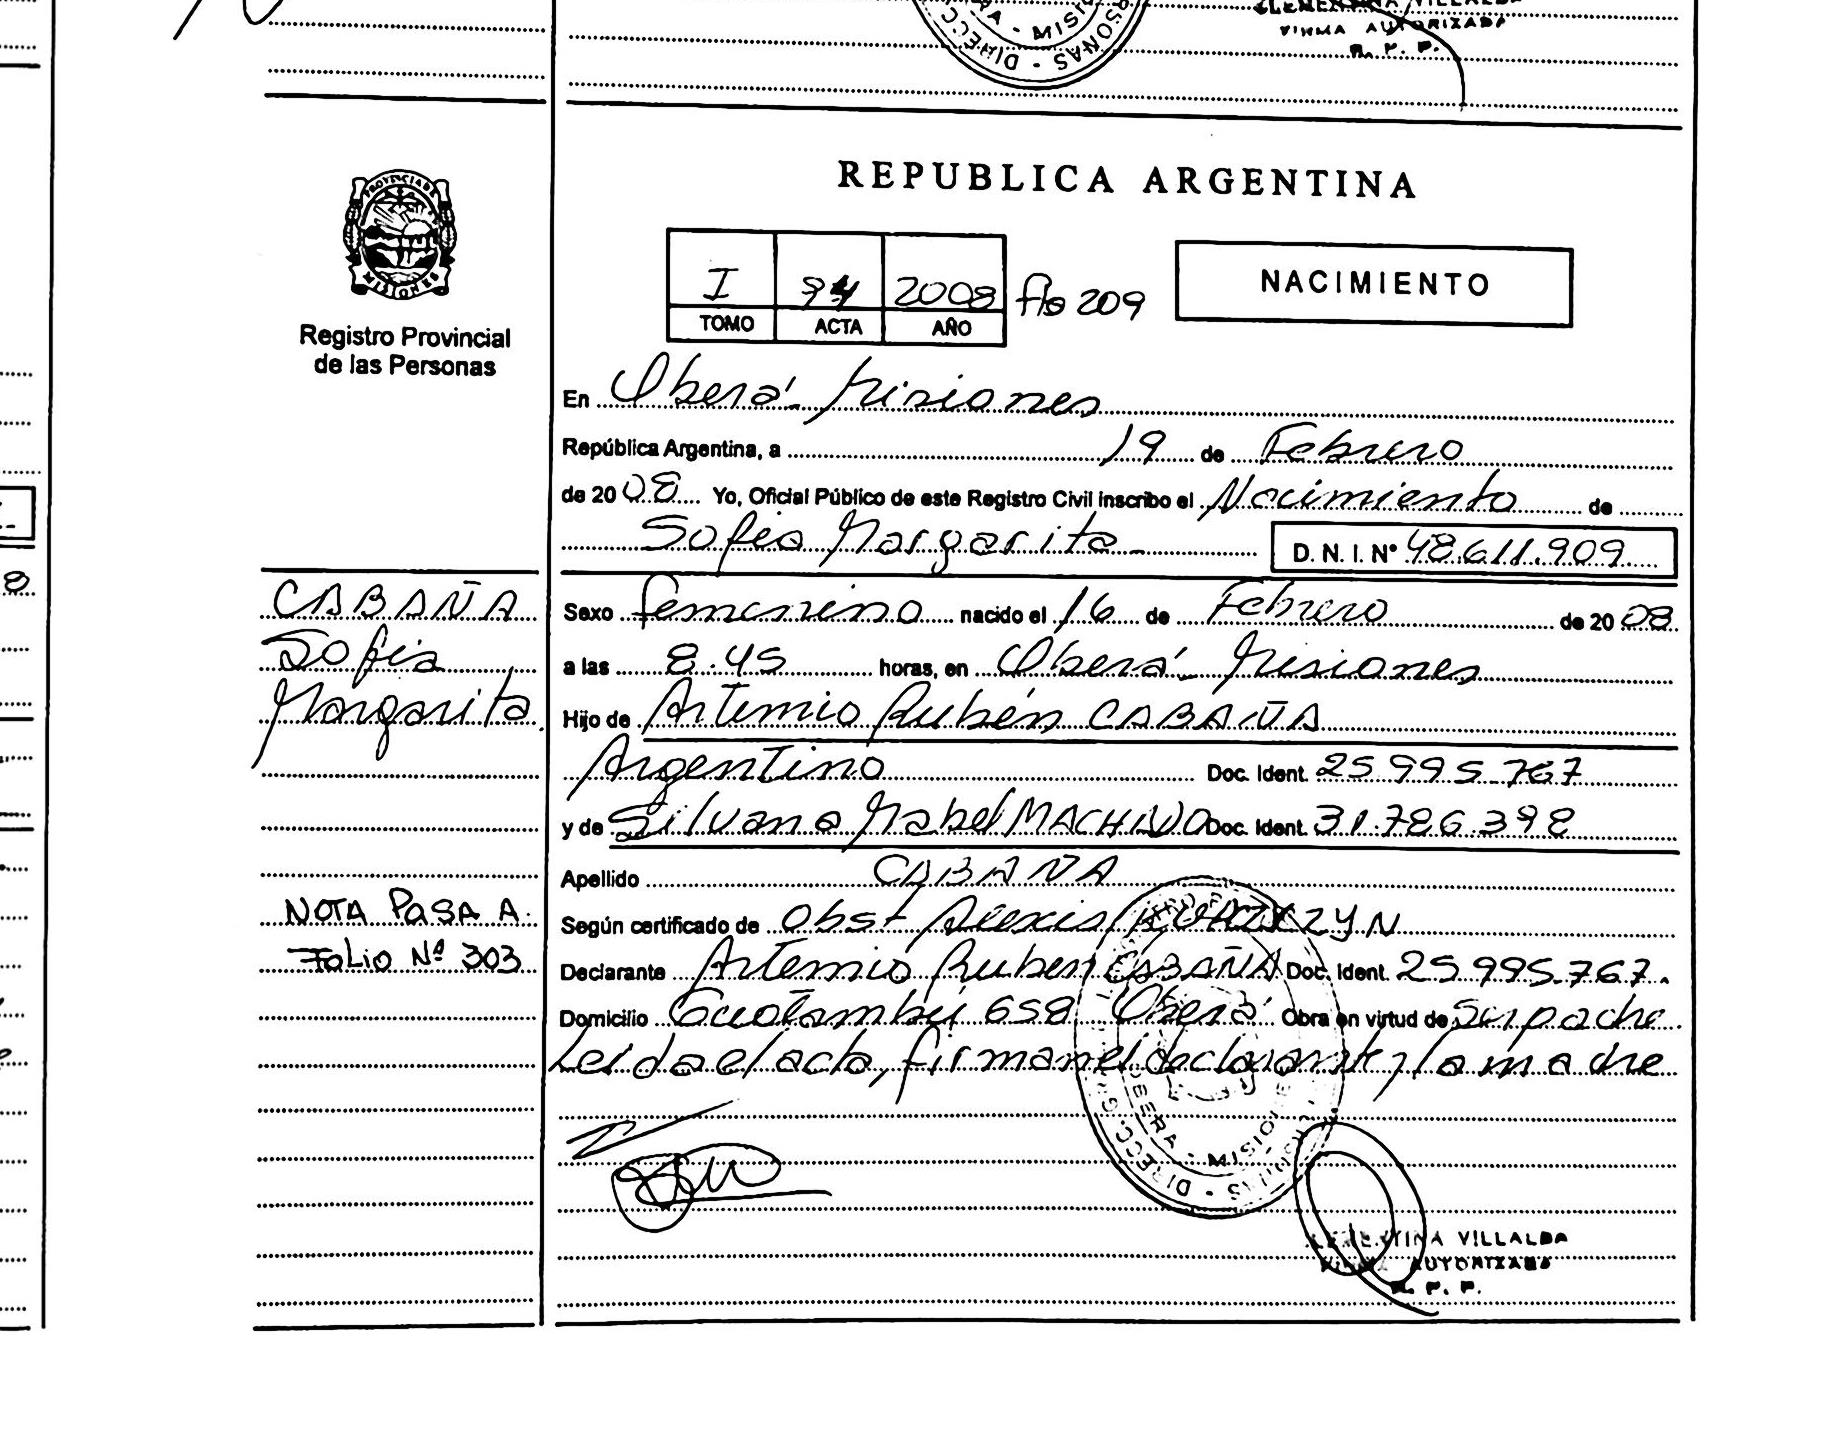 CLEMENTINA VILLALDA
FIRMA AUTORIZADA
R. P. P.
MISIO
SONAS - DIRECC
REPUBLICA ARGENTINA
PROVINCIA DE
MISIONES
Registro Provincial
de las Personas
I 2008 flo 209
TOMO ACTA AÑO
NACIMIENTO
En Oberá - Misiones
República Argentina, a 19 de Febrero
de 2008 Yo, Oficial Público de este Registro Civil inscribo el Nacimiento de
Sofia Margarita - D. N. I. Nº 48.611.909
CABAÑA
Sofia
Margarita
Sexo femenino nacido el 16 de Febrero de 2008
a las 8:45 horas, en Oberá - Misiones
Hijo de Artemio Rubén CABAÑA
Argentino Doc. Ident. 25.995.767
y de Silvana Mabel MACHADO Doc. Ident. 31.786.398
Apellido CABAÑA
NOTA PASA A
FOLIO Nº 303
Según certificado de Obst Alexis
Declarante Artemio Ruben CABAÑA Doc. Ident. 25.995.767.
Domicilio Guatambú 658 Oberá Obra en virtud de Su padre
Leida el acta, firman el declarante y la madre
OBERA - MISIONES
DIRECC. G
CLEMENTINA VILLALDA
FIRMA AUTORIZADA
R. P. P.